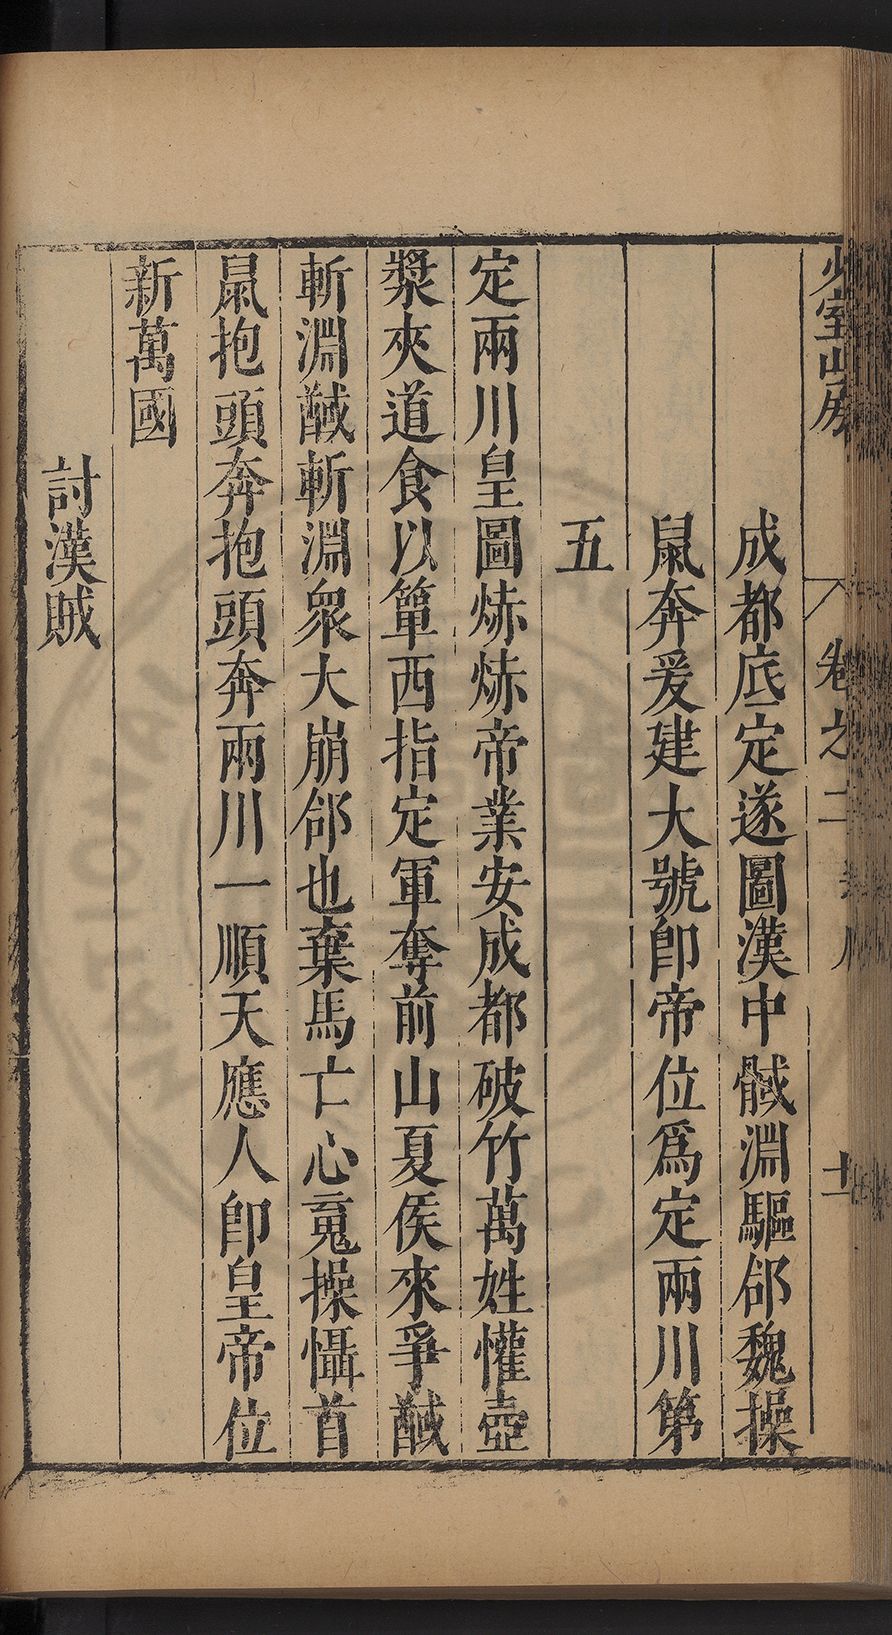 少室山房 卷之二 十一
成都底定遂圖漢中馘淵驅郃魏操
鼠奔爰建大號卽帝位爲定兩川第
五
定兩川皇圖烞烞帝業安成都破竹萬姓懽壺
漿夾道食以簞西指定軍奪前山夏侯來爭馘
斬淵馘斬淵衆大崩郃也棄馬亡心䰟操懾首
鼠抱頭奔抱頭奔兩川一順天應人卽皇帝位
新萬國
討漢賊